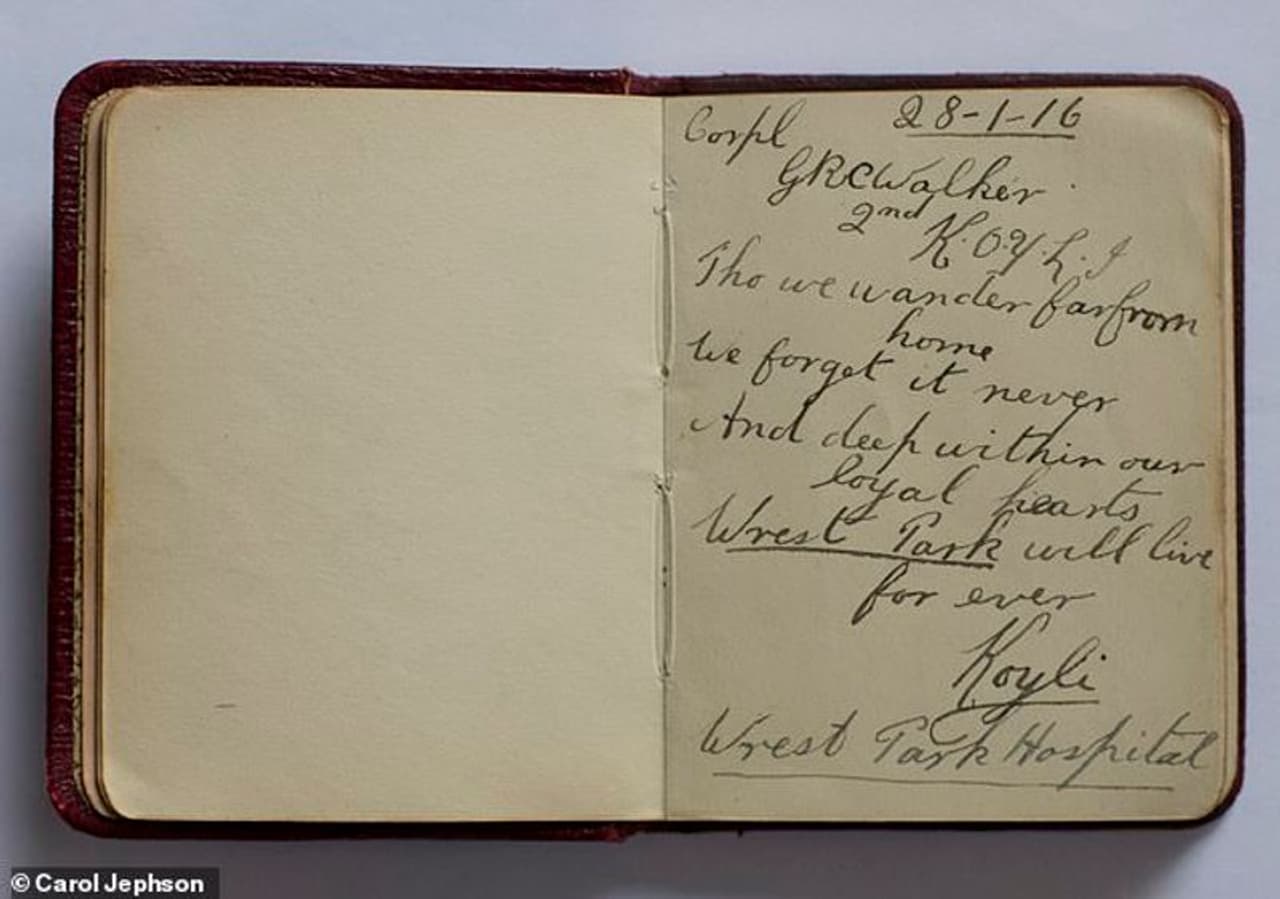 28-1-16
Corpl
GRCWalker
2nd K.O.Y.L.I
Tho we wander far from
home
We forget it never
And deep within our
loyal hearts
Wrest Park will live
for ever
Koyli
Wrest Park Hospital
© Carol Jephson